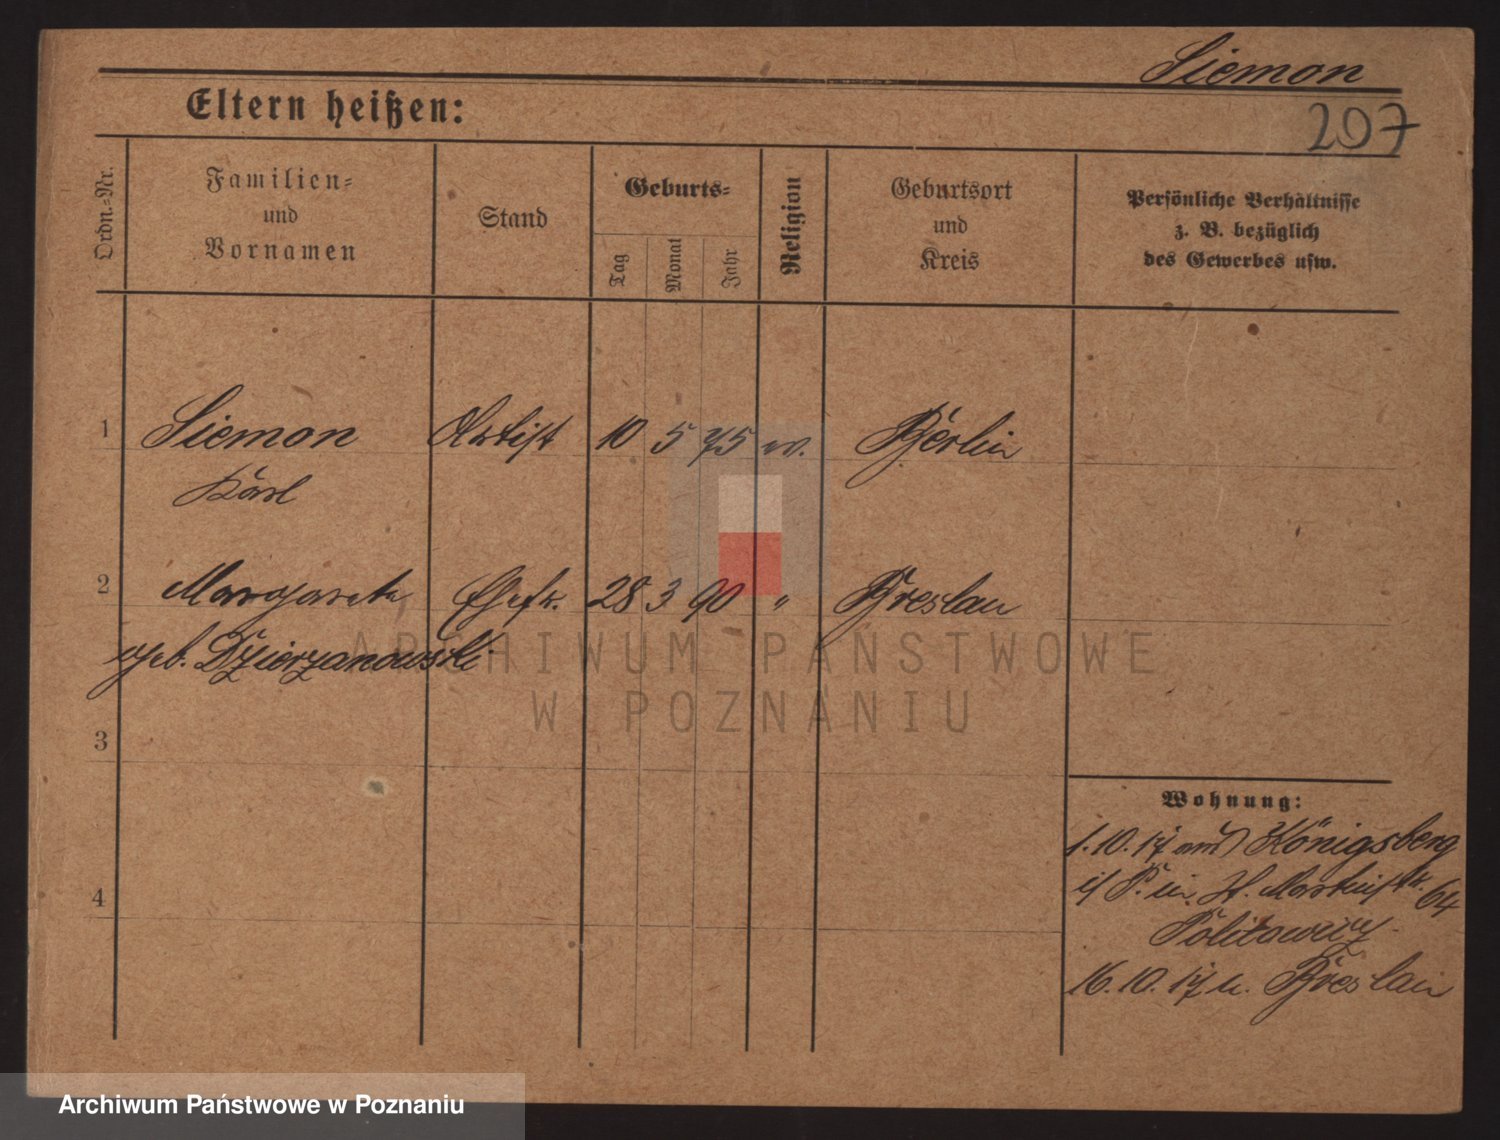 Siemon
207
Eltern heißen:
Ordn.-Nr.
Familien-
und
Vornamen
Stand
Geburts-
Tag
Monat
Jahr
Religion
Geburtsort
und
Kreis
Persönliche Verhältnisse
z. B. bezüglich
des Gewerbes usw.
1 Siemon Artist 10 5 75 ev. Berlin
Karl
2 Margarete Ehefr. 28 3 90 " Breslau
geb. Dzierzanowski
3
4
Wohnung:
1.10.17 aus Königsberg
i/P. in St. Martinstr. 64
16.10.17 n. Breslau
ARCHIWUM PAŃSTWOWE
W POZNANIU
Archiwum Państwowe w Poznaniu